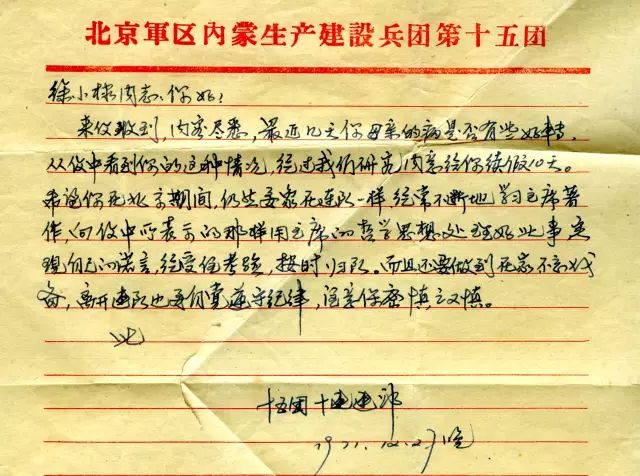 北京軍区內蒙生产建設兵团第十五团
徐小棣同志:你好!
来信收到,内容尽悉,最近几天你母亲的病是否有些好转,
从信中看到你的这种情况,经过我们研究同意给你续假10天。
希望你在北京期间,仍然要象在连队一样,经常不断地学习主席著
作,向信中所表示的那样用主席的哲学思想处理好此事,实
现自己的诺言,经受住考验,按时归队。而且还要做到在家不忘战
备,离开连队也要自觉遵守纪律,注意保密慎之又慎。
此
十五团十连连部
1971.12.27晚